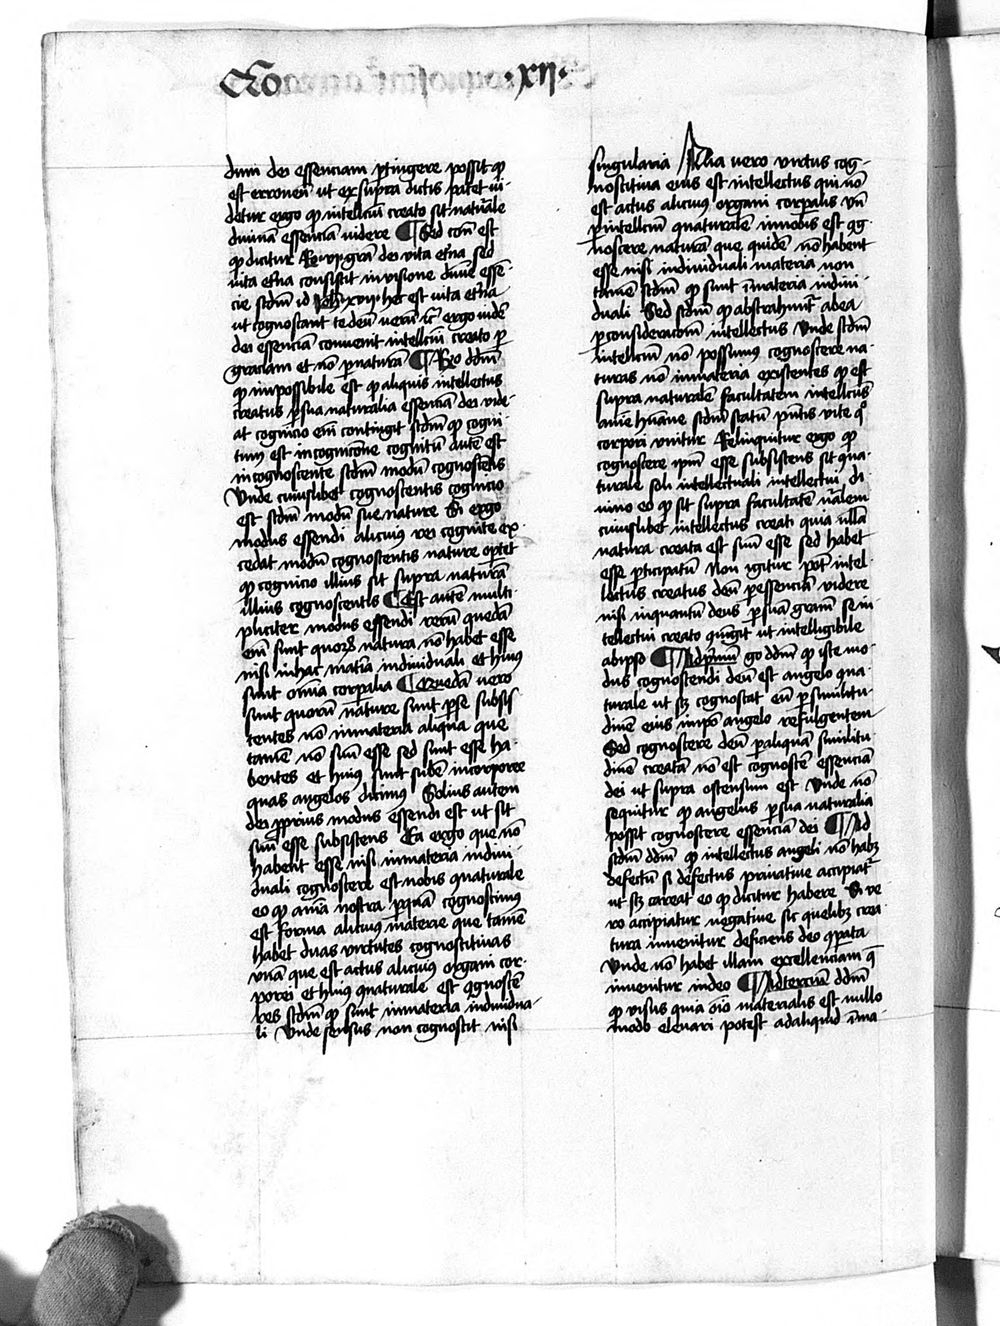 Qo .xij.
dum dei essenciam ꝑtingere possit qꝫ
est erroneū ut ex supra dictis patet vi-
detur ergo qꝫ intellcūi creato sit natu͛ale
diuinā essenciā videre ¶ Sed con͛ est
qꝫ dicitur Ro vjͦ gr̄a dei vita et͛na Sed
vita et͛na consistit in visione diuīe essē-
cie scdm̄ id Joh̄ xvijͦ hec est vita et͛na
ut cognoscant te deū verū ꝛc̄ ergo videre
dei essenciā conuenit intellcūi creato ꝑ
graciam et nō ꝑ naturā ¶ Rͦ ddm̄
qꝫ impossibile est qꝫ aliquis intellectus
creatus ꝑ sua naturalia essenciā dei vide-
at cognicio em̄ contingit scdm̄ qꝫ cogni
tum est in cognoscente cognitū autē est
in cognoscente scdm̄ modū cognoscētis
Vnde cuiuslibet cognoscentis cognicio
est scdm̄ modū sue nature Si ergo
modus essendi alicuius rei cognite ex-
cedat modū cognoscentis nature oꝑtet
qꝫ cognicio illius sit supra naturā
illius cognoscentis ¶ Est autē multi-
pliciter modus essendi rerū quedā
em̄ sunt quorꝝ natura nō habet esse
nisi in hac mat͛ia indiuiduali et hmōi
sunt om̄ia corꝑalia ¶ Quedā vero
sunt quorū nature sunt ꝑ se subsis
tentes nō in materia aliqua que
tamē nō sunt esse sed sunt esse ha-
bentes et hmōi sunt subē incorporee
quas angelos dicimꝰ Solius autem
dei ꝓprius modus essendi est ut sit
suū esse subsistens Ea ergo que nō
habent esse nisi in materia indiui-
duali cognoscere est nobis ɔnaturale
eo qꝫ aīa nostra ꝑ quā cognoscimꝰ
est forma alicuiꝰ materie que tamē
habet duas virtutes cognoscitiuas
vnā que est actus alicuiꝰ organi cor-
porei et huic ɔnaturale est ɔgnoscere
res scdm̄ qꝫ sunt in materia indiuidua-
li Vnde sensus non cognoscit nisi
singularia Alia vero virtus cog-
noscitiua eius est intellectus qui nō
est actus alicuiꝰ organi corꝑalis vn̄
ꝑ intellcūm ɔnaturale in nobis est ɔg-
noscere naturā que quidē nō habent
esse nisi in indiuiduali materia non
tamē scdm̄ qꝫ sunt in materia indiui-
duali Sed scdm̄ qꝫ abstrahunt͛ ab ea
ꝑ consideracōm intellectus Vnde scdm̄
intellcūm nō possumꝰ cognoscere na-
turas nō in materia existentes qꝫ est
supra naturalē facultatem intellcūs
aīe hūane scdm̄ statū pn̄tis vite qͦ
corpori vnitur Relinquitur ergo qꝫ
cognoscere ipm̄ esse subsistens sit na-
turale soli intellectui di
uino eo qꝫ sit supra facultatē na͛lem
cuiuslibet intellectus creati quia nulla
natura creata est suū esse sed habet
esse ꝑticipatū Non igitur pōt intel-
lectus creatus deū ꝑ essenciā videre
nisi inquantū deus ꝑ suā gram̄ se in-
tellectui creato ɔiungit ut intelligibile
ab ipso ¶ Ad p͛mū go ddm̄ qꝫ iste mo-
dus cognoscendi deū est angelo na-
turale ut scꝫ cognoscat eū ꝑ similitu-
dinē eius in ipō angelo refulgentem
Sed cognoscere deū ꝑ aliquā similitu
dinē creatā nō est cognoscē essenciā
dei ut supra ostensum est Vnde nō
sequitur qꝫ angelus ꝑ sua naturalia
possit cognoscere essenciā dei ¶ Ad
scdm̄ ddm̄ qꝫ intellectus angeli nō habꝫ
defectū si defectus priuatiue accipiat͛
ut scꝫ careat eo qꝫ dicitur habere Si ve
ro accipiatur negatiue sic quelibꝫ crea
tura inuenitur deficiens deo ɔꝑata
Vnde nō habet illam excellenciam q̄
inuenitur in deo ¶ Ad terciū ddm̄
qꝫ visus quia oīo materialis est nullo
modo eleuari potest ad aliquid īma-